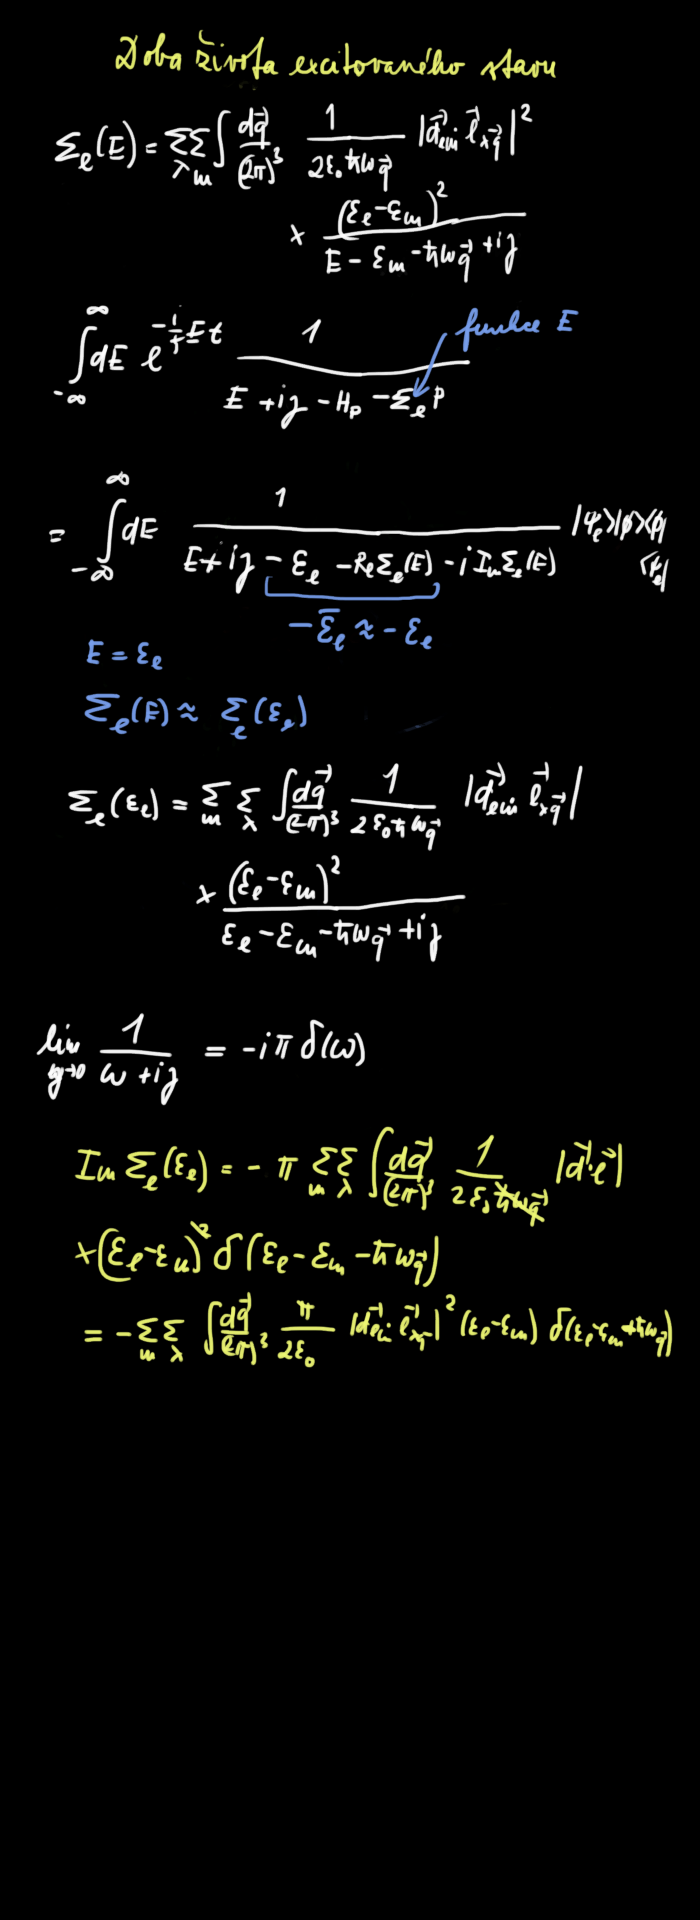 Doba života excitovaného stavu
Σ_e(E) = Σ_λ Σ_m ∫ dq⃗/(2π)³ 1/(2ε₀ħω_q⃗) |d⃗_em · e⃗_λq⃗|²
× (ε_e - ε_m)² / (E - ε_m - ħω_q⃗ + iη)
∫_{-∞}^{∞} dE e^{-i/ħ Et} 1/(E + iη - H_p - Σ_e P) funkce E
= ∫_{-∞}^{∞} dE 1/(E + iη - ε_e - Re Σ_e(E) - i Im Σ_e(E)) |ψ_e>|φ><φ|<ψ_e|
- ε̄_e ≈ - ε_e
E = ε_e
Σ_e(E) ≈ Σ_e(ε_e)
Σ_e(ε_e) = Σ_m Σ_λ ∫ dq⃗/(2π)³ 1/(2ε₀ħω_q⃗) |d⃗_em · e⃗_λq⃗|
× (ε_e - ε_m)² / (ε_e - ε_m - ħω_q⃗ + iη)
lim_{η→0} 1/(ω + iη) = -iπ δ(ω)
Im Σ_e(ε_e) = - π Σ_m Σ_λ ∫ dq⃗/(2π)³ 1/(2ε₀ħω_q⃗) |d⃗·e⃗|
× (ε_e - ε_m)² δ(ε_e - ε_m - ħω_q⃗)
= - Σ_m Σ_λ ∫ dq⃗/(2π)³ π/(2ε₀) |d⃗_em · e⃗_λq⃗|² (ε_e - ε_m) δ(ε_e - ε_m + ħω_q⃗)